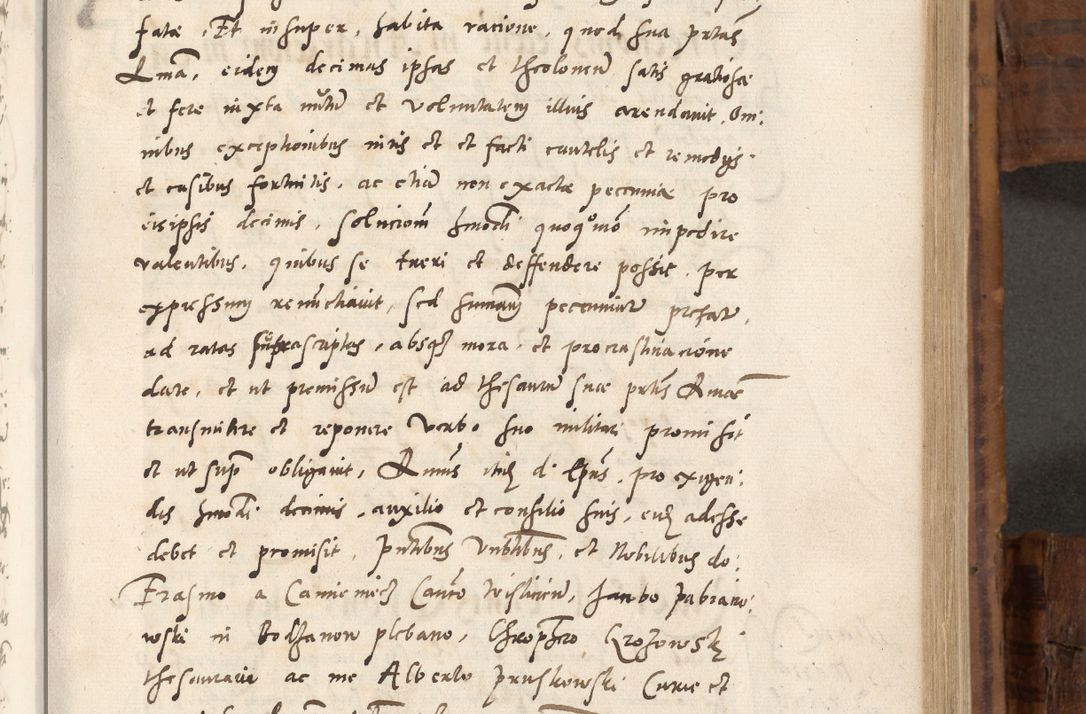 fatæ, Et insuper, habita racione, quod sua prtas
Rma, eidem decimas ipsas et theloneum satis gratiose
et fere iuxta nutum et voluntatem illius arendauit, Om:
nibus exceptionibus iuris et et facti cautelis et remedys
et casibus fortuitis, ac etiam non exactæ pecuniæ pro
eisipsis decimis, solucionem hmodi quoquomo impedire
valentibus, quibus se tueri et deffendere possit, per
expressum renunctiauit, sed summam pecuniar prefatar,
ad ratas suprascriptas, absq mora, et procrastinacione
dare, et ut premissum est ad thesaurum suæ prtis Rmæ
transmittere et reponere verbo suo militari promisit
et ut supra obligauit, Rmus itidem d. Epus, pro exigen:
dis hmodi decimis, auxilio et consilio suis, eidem adesse
debet et promisit, Pntibus Vnblibus, et Nobilibus do:
Erasmo a Camieniecz Canto Wislicien, Jacobo Pabiano:
wski in Bodzanow plebano, Chrophero Krozowsky
thesaurario ac me Alberto Pruskowski Curie et